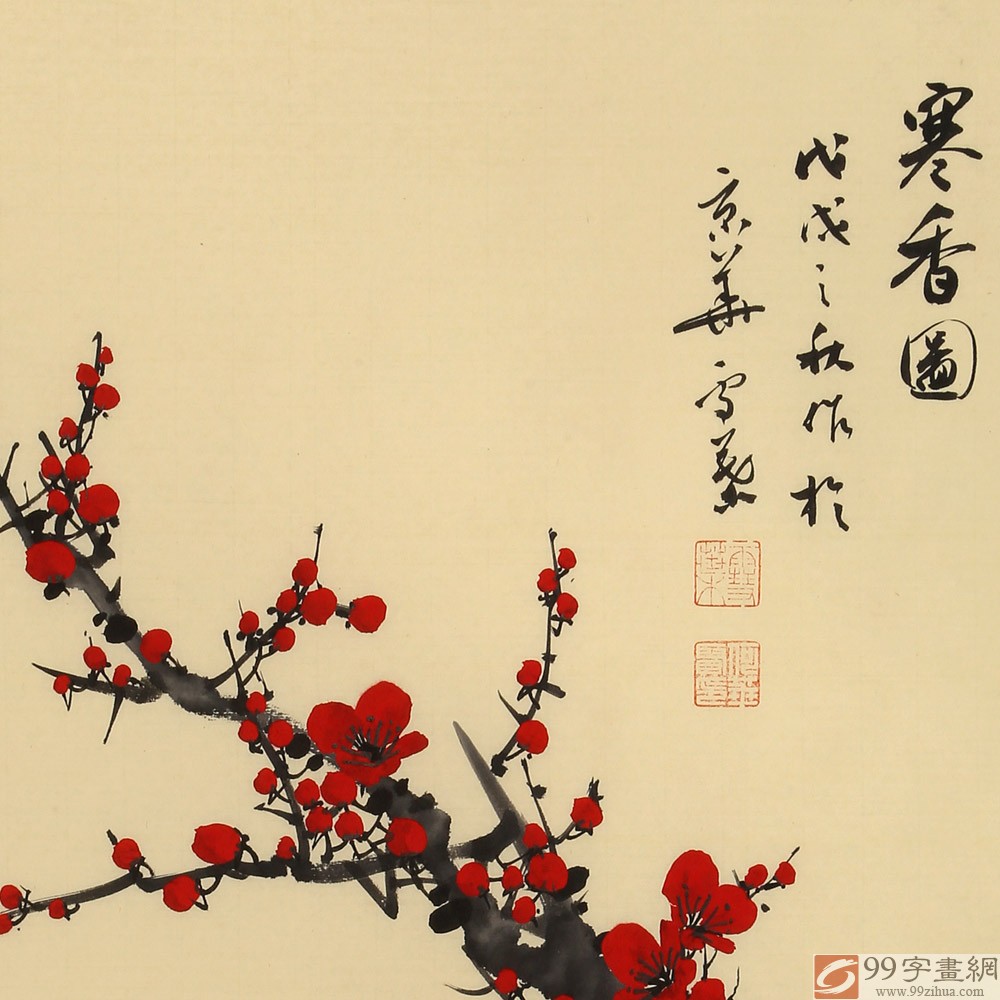 寒香圖
戊戌之秋作於
京華雪葉
99字畫網
www.99zihua.com